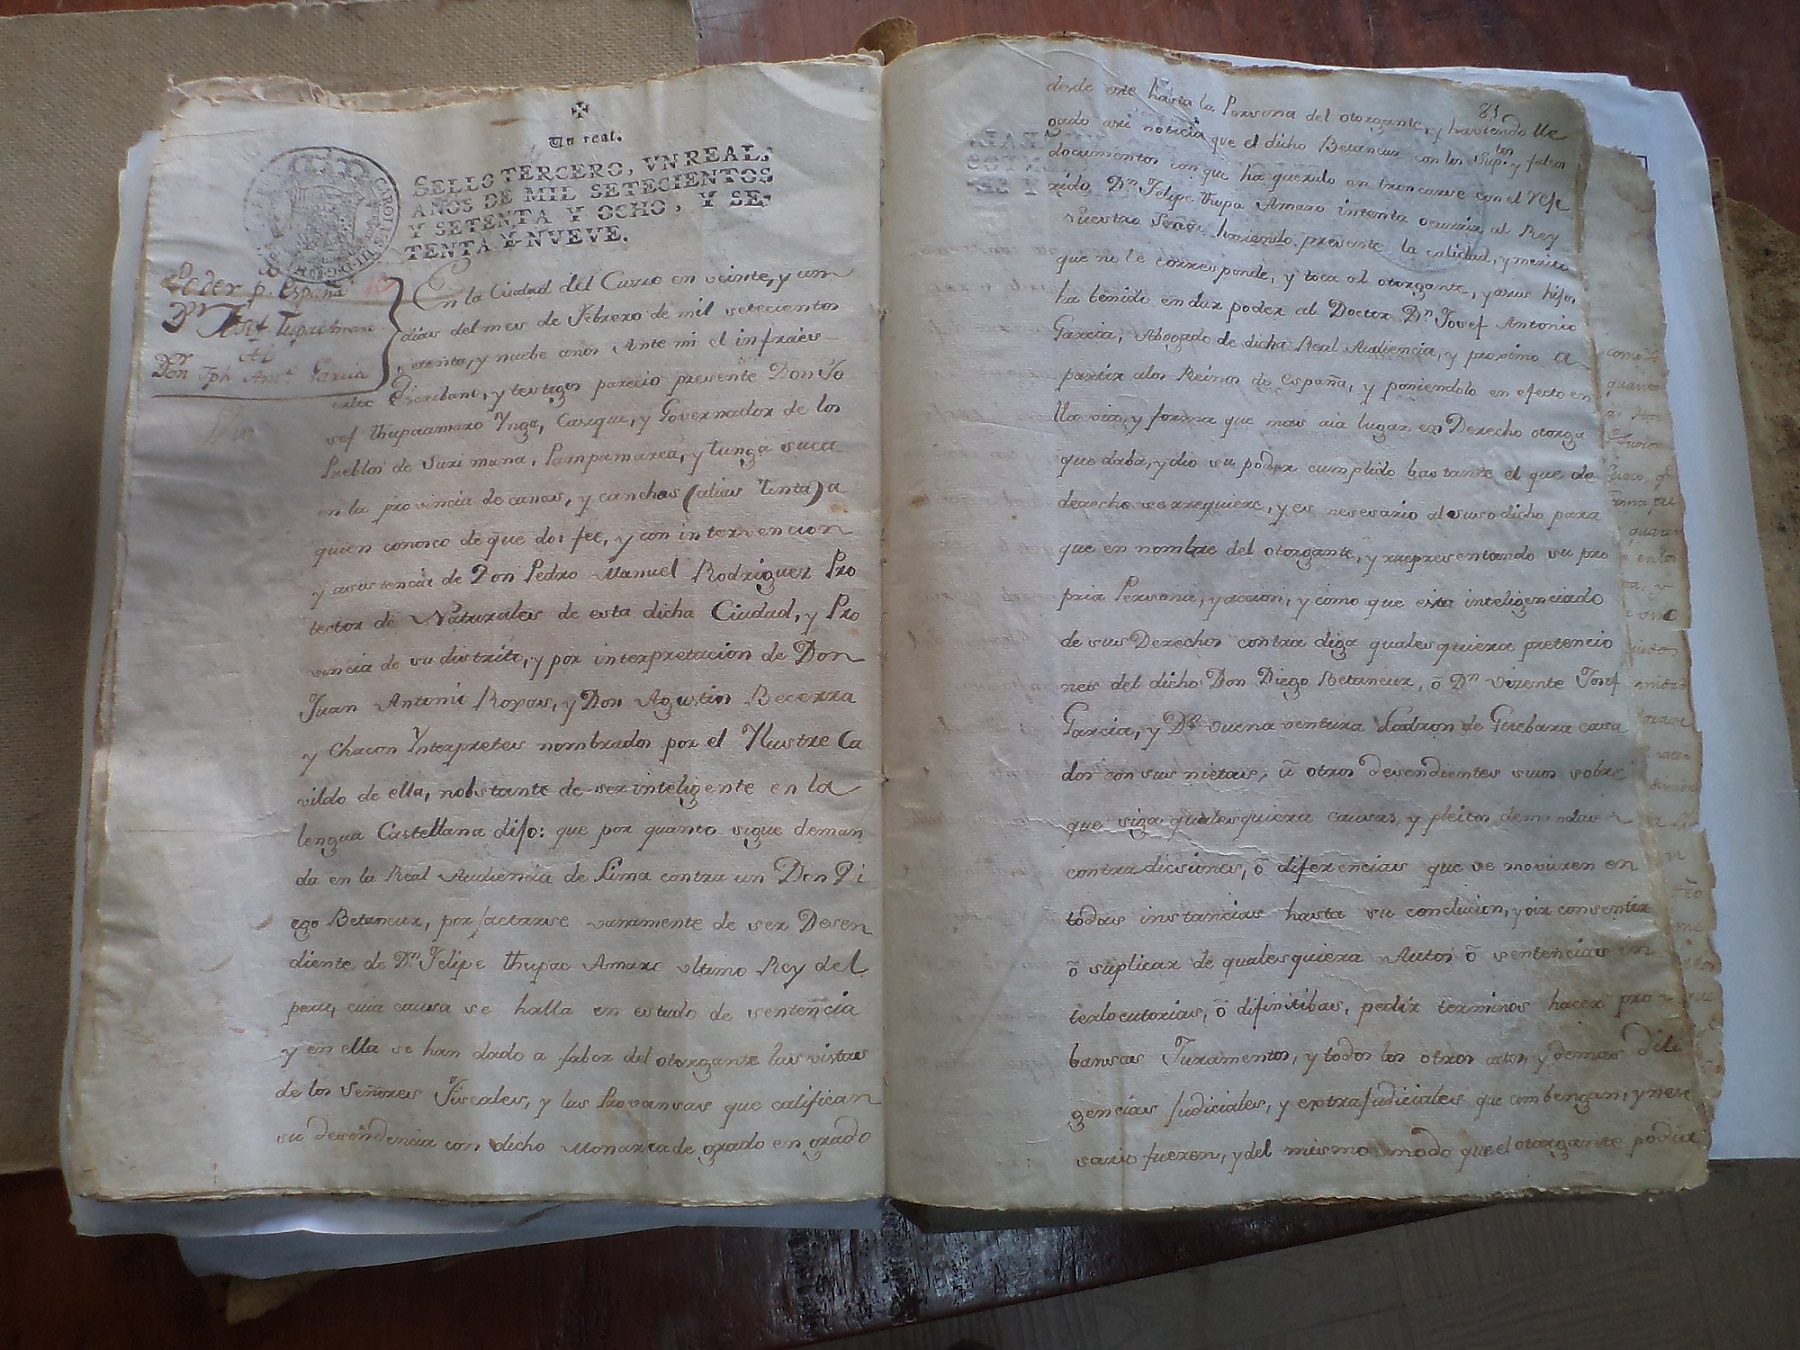 Un real.
SELLO TERCERO, VN REAL,
AÑOS DE MIL SETECIENTOS
Y SETENTA Y OCHO, Y SE-
TENTA Y NVEVE.
Poder pª España
Dn Josef Tupa Amaro
Al
Don Jph Antº Garcia
En la Ciudad del Cuzco en veinte, y un
dias del mes de Febrero de mil setecientos
setenta, y nuebe años, Ante mi el infraes-
cripto Escribano, y testigos parecio presente Don Jo
sef thupaamaro Ynga, Casique, y Governador de los
Pueblos de Surimana, Pampamarca, y tungasuca
en la provincia de canas, y canches (alias Tinta) a
quien conosco de que doi fee, y con intervencion
y asistencia de Don Pedro Manuel Rodriguez Pro
tector de Naturales de esta dicha Ciudad, y Pro
vincia de su distrito, y por interpretacion de Don
Juan Antonio Roxas, y Don Agustin Becerra
y Chacon Ynterpretes nombrados por el Ylustre Ca
vildo de ella, nobstante de ser inteligente en la
lengua Castellana dijo: que por quanto sigue deman
da en la Real Audiencia de Lima contra un Don Di
ego Betancur, por jactarse vanamente de ser Desen
diente de Dn Felipe thupac Amaro ultimo Rey del
peru, cuia causa se halla en estado de sentencia
y en ella se han dado a fabor del otorgante las vistas
de los Señores Fiscales, y las Provansas que califican
su desendencia con dicho Monarca de grado en grado
81
desde este hasta la Persona del otorgante, y haviendo lle
gado asi noticia que el dicho Betancur con los Sup.tos y falsos
documentos con que ha querido entroncarse con el refe
rido Dn Felipe thupa Amaro intenta ocurrir al Rey
nuestro Señor haciendo presente la calidad, y merito
que no le corresponde, y toca al otorgante, y a sus hijos
ha benido en dar poder al Doctor Dn Josef Antonio
Garcia, Abogado de dicha Real Audiencia, y proximo a
partir alos Reinos de España, y poniendolo en efecto en
lla via, y forma que mas aia lugar en Derecho otorga
que daba, y dio su poder cumplido bastante el que de
derecho se rrequiere, y es nesesario al susodicho para
que en nombre del otorgante, y rrepresentando su pro
pria Persona, y accion, y como que esta inteligenciado
de sus Derechos contra diga quales quiera pretencio
nes del dicho Don Diego Betancur, ō Dn Vizente Josef
Garcia, y Dn vuena ventura Ladron de Guebara casa
dos con sus nietas, ū otros desendientes suos sobre
que siga quales quiera causas, y pleitos demandas
contradicsiones, ō diferencias que se movieren en
todas instancias hasta su conclucion, y oir consentir
ō suplicar de quales quiera Autos ō sentencias in
terlocutorias, ō difinitibas, pedir terminos hacer pro
bansas Juramentos, y todos los otros actos, y demas dili
gencias judiciales, y extrajudiciales que combengan, y nese
sario fueren, y del mismo modo que el otorgante podia